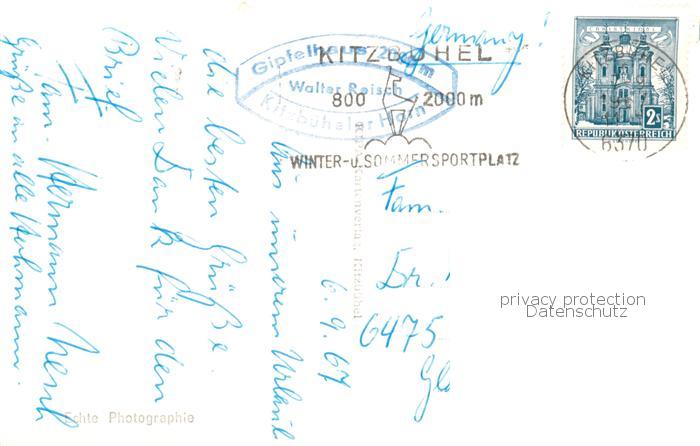 Germany!
Gipfelhaus 20 m
Walter Reisch
Kitzbüheler Horn
KITZBÜHEL
800 2000 m
WINTER-U.SOMMERSPORTPLATZ
KITZBÜHEL
6370
2S
REPUBLIK ÖSTERREICH
6.9.67
Aus unserem Urlaub
die besten Grüße.
Vielen Dank für den
Brief.
Fam. Hermann
Grüße an alle
Fam.
Dr.
6475
Gl
Kitzbühel
Echte Photographie
privacy protection
Datenschutz